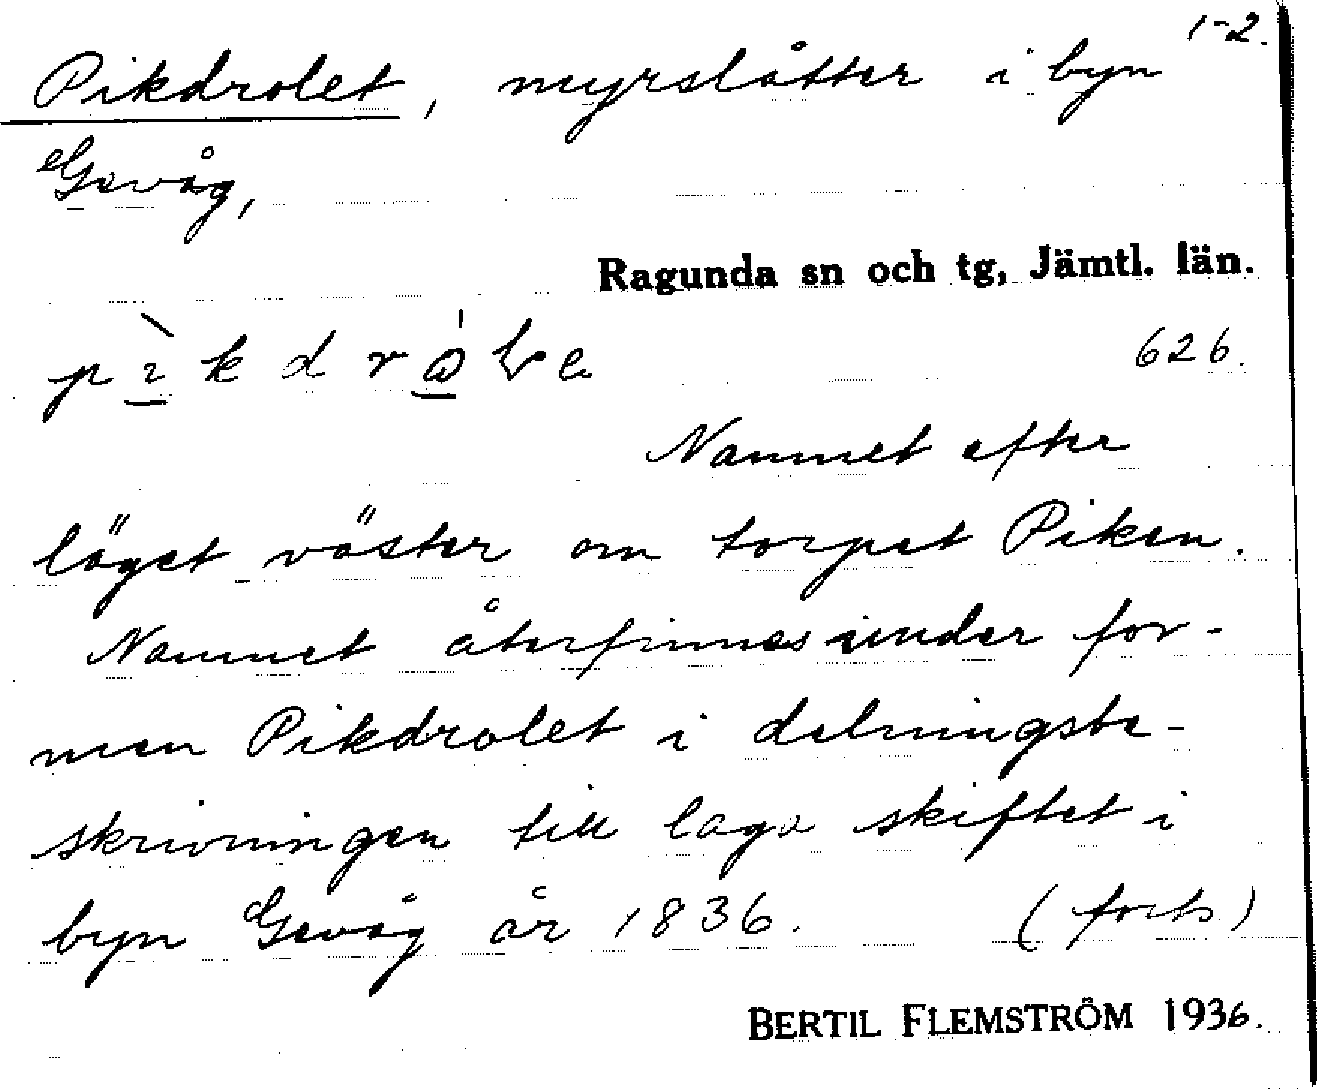 1-2.
Pikdrolet, myrslåtter i byn
Gevåg,
Ragunda sn och tg, Jämtl. län.
626.
Namnet efter
läget väster om torpet Piken.
Namnet återfinnes under for-
men Pikdrolet i delningsbe-
skrivningen till laga skiftet i
byn Gevåg år 1836. (forts)
BERTIL FLEMSTRÖM 1936.